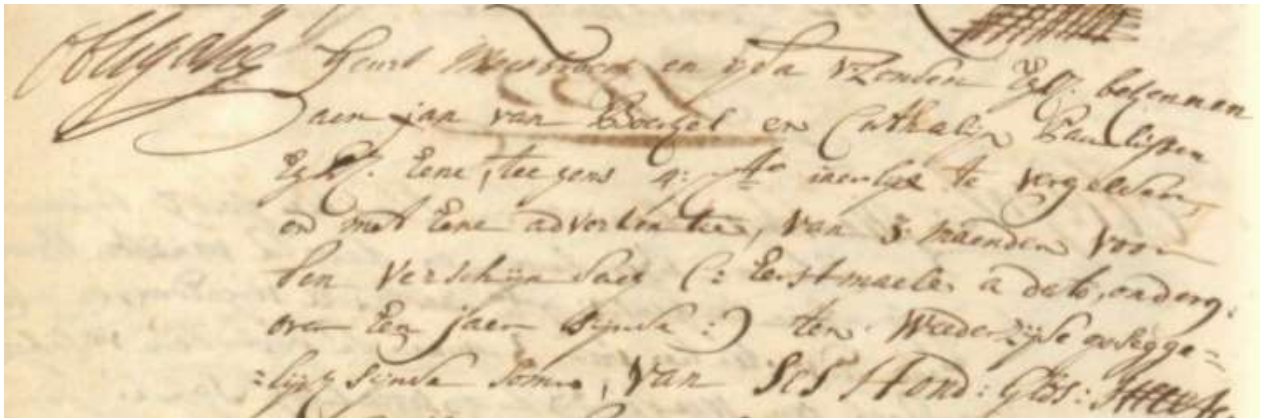 obligatie Geurt en yda v: Zanden Egl. bekennen
aen jan van en Cathalijn
Egl. Eene, tee gens 4: jaerlijx te vergelden,
en met Eene advertentie, van 3: maenden voor
den verschijn dagh (: Eerstmaele a dato, onderg:
over Een jaer sijnde :) ten Weederzijde gesegge=
=lijx sijnde Somme, van Ses Hond: Glds: